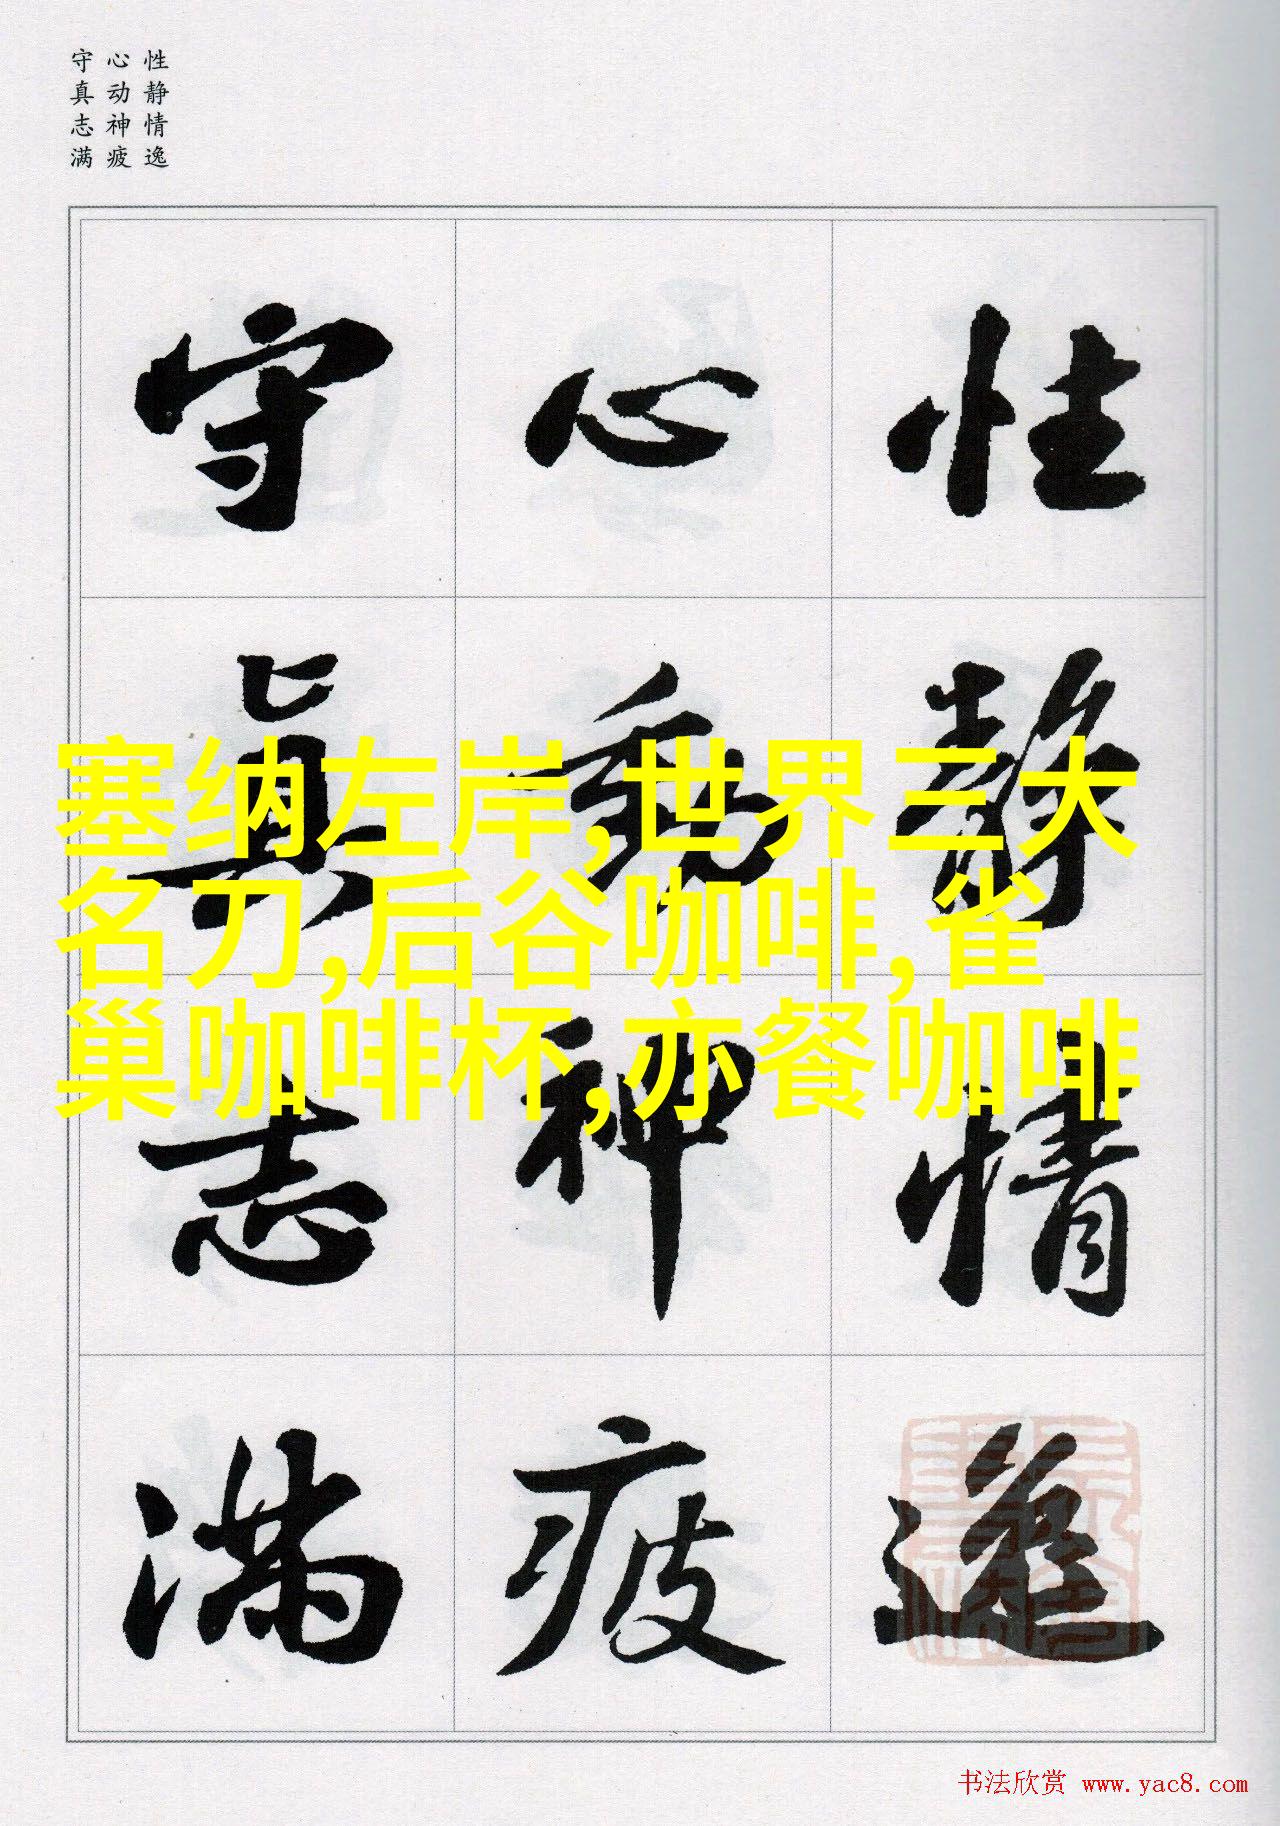 性静情逸
心动神疲
守真志满
性靜情逸
心動神疲
守真志满
塞纳左岸,世界三大
名刀,后谷咖啡,雀
巢咖啡杯,亦餐咖啡
书法欣赏 www.yac8.com